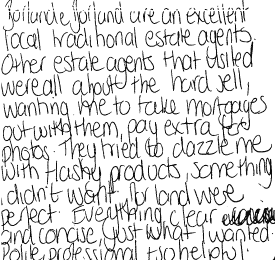 are an excellent
local traditional estate agents.
Other estate agents that visited
were all about the hard sell,
wanting me to take mortgages
out with them, pay extra for
photos. They tried to dazzle me
with flashy products, something
i didn't want. for land were
perfect. Everything clear
and concise, just what I wanted.
Polite, professional, helpful!